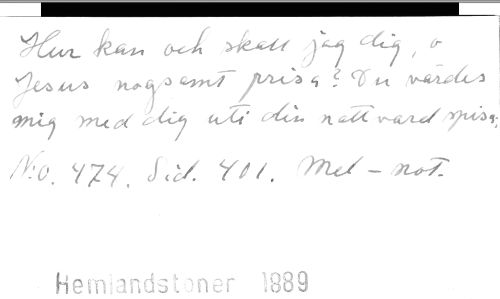 Hur kan och skall jag dig, o
Jesus nogsamt prisa? Du värdes
mig med dig uti din nattvard spisa;
N:o. 474. Sid. 401. Mel-not.
Hemlandstoner 1889